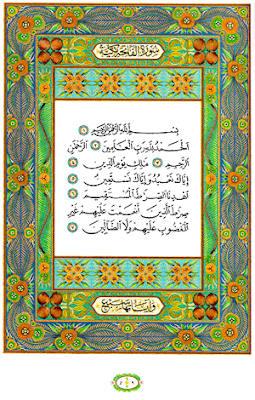 سورة الفاتحة مكية
بسم الله الرحمن الرحيم ١
الحمد لله رب العالمين ٢ الرحمن
الرحيم ٣ ملك يوم الدين ٤
إياك نعبد وإياك نستعين ٥
اهدنا الصرط المستقيم ٦
صرط الذين أنعمت عليهم غير
المغضوب عليهم ولا الضالين ٧
وآياتها سبع